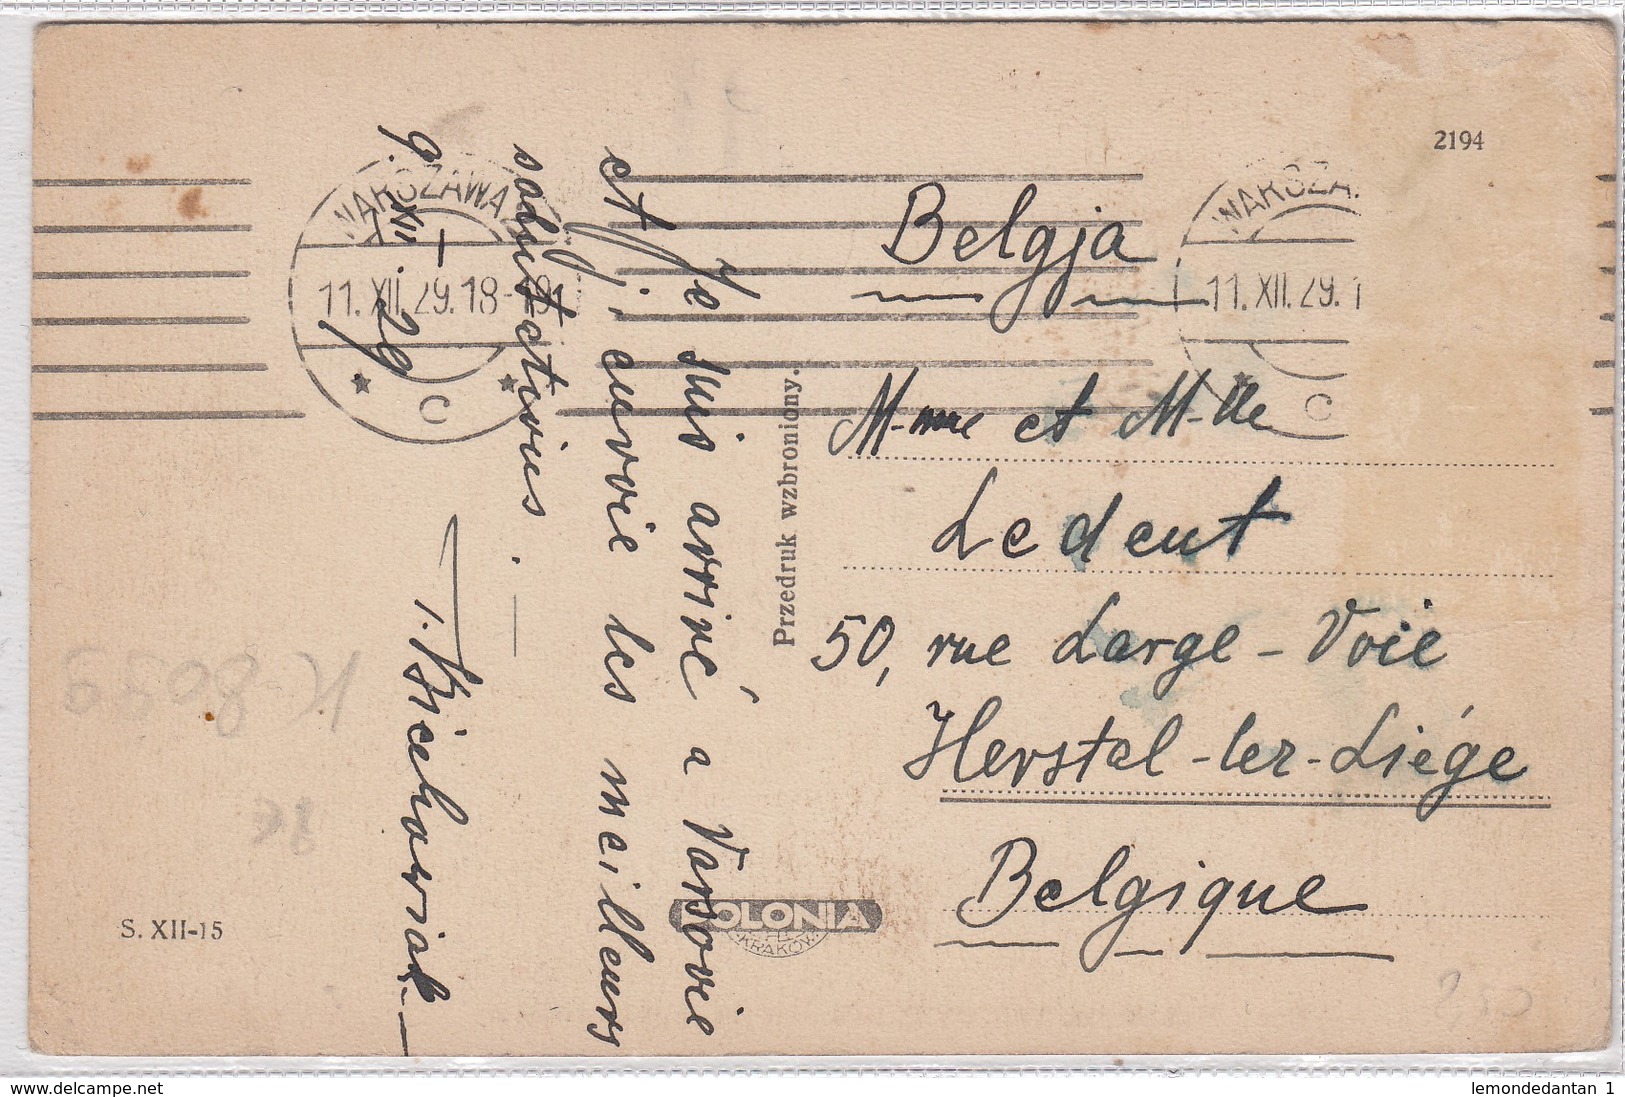 2194
WARSZAWA
11.XII.29.18-
C
WARSZA
11.XII.29.1
C
9. XII - 29
Je suis arrivé à Varsovie
et j'envoie les meilleurs
salutations.
Przedruk wzbroniony.
Belgja
M-me et M-lle
Ledent
50, rue Large-Voie
Herstal-lez-Liége
Belgique
POLONIA
KRAKÓW
S. XII-15
K 8079
8€
2,50
www.delcampe.net
lemondedantan 1